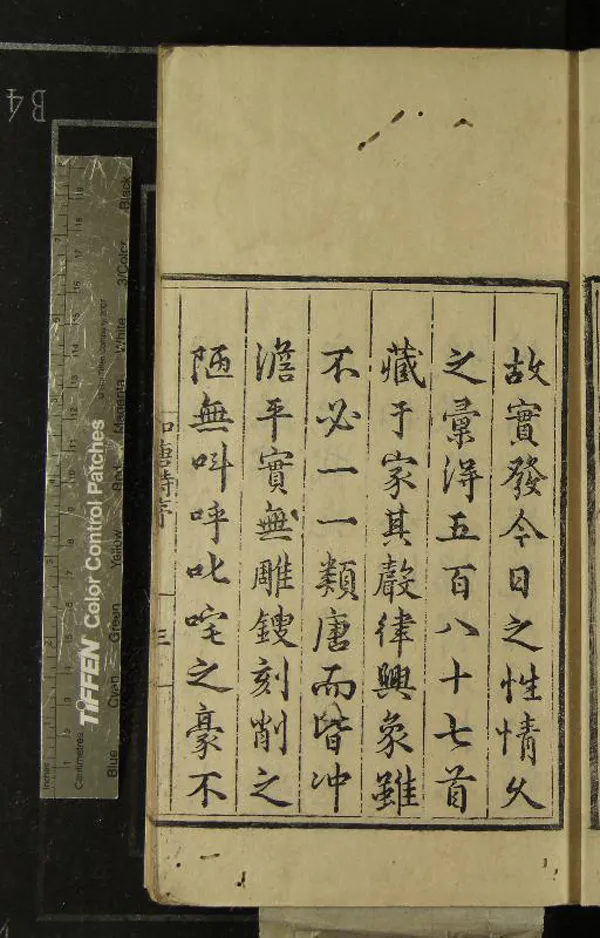 故實發今日之性情久
之彙淂五百八十七首
藏于家其聲律興象雖
不必一一類唐而皆冲
澹平實無雕鎪刻削之
陋無呌呼叱咤之豪不
和唐詩序
三
B4
TIFFEN Color Control Patches
Inches
Centimetres
Blue
Cyan
Green
Yellow
Red
Magenta
White
3/Color
Black